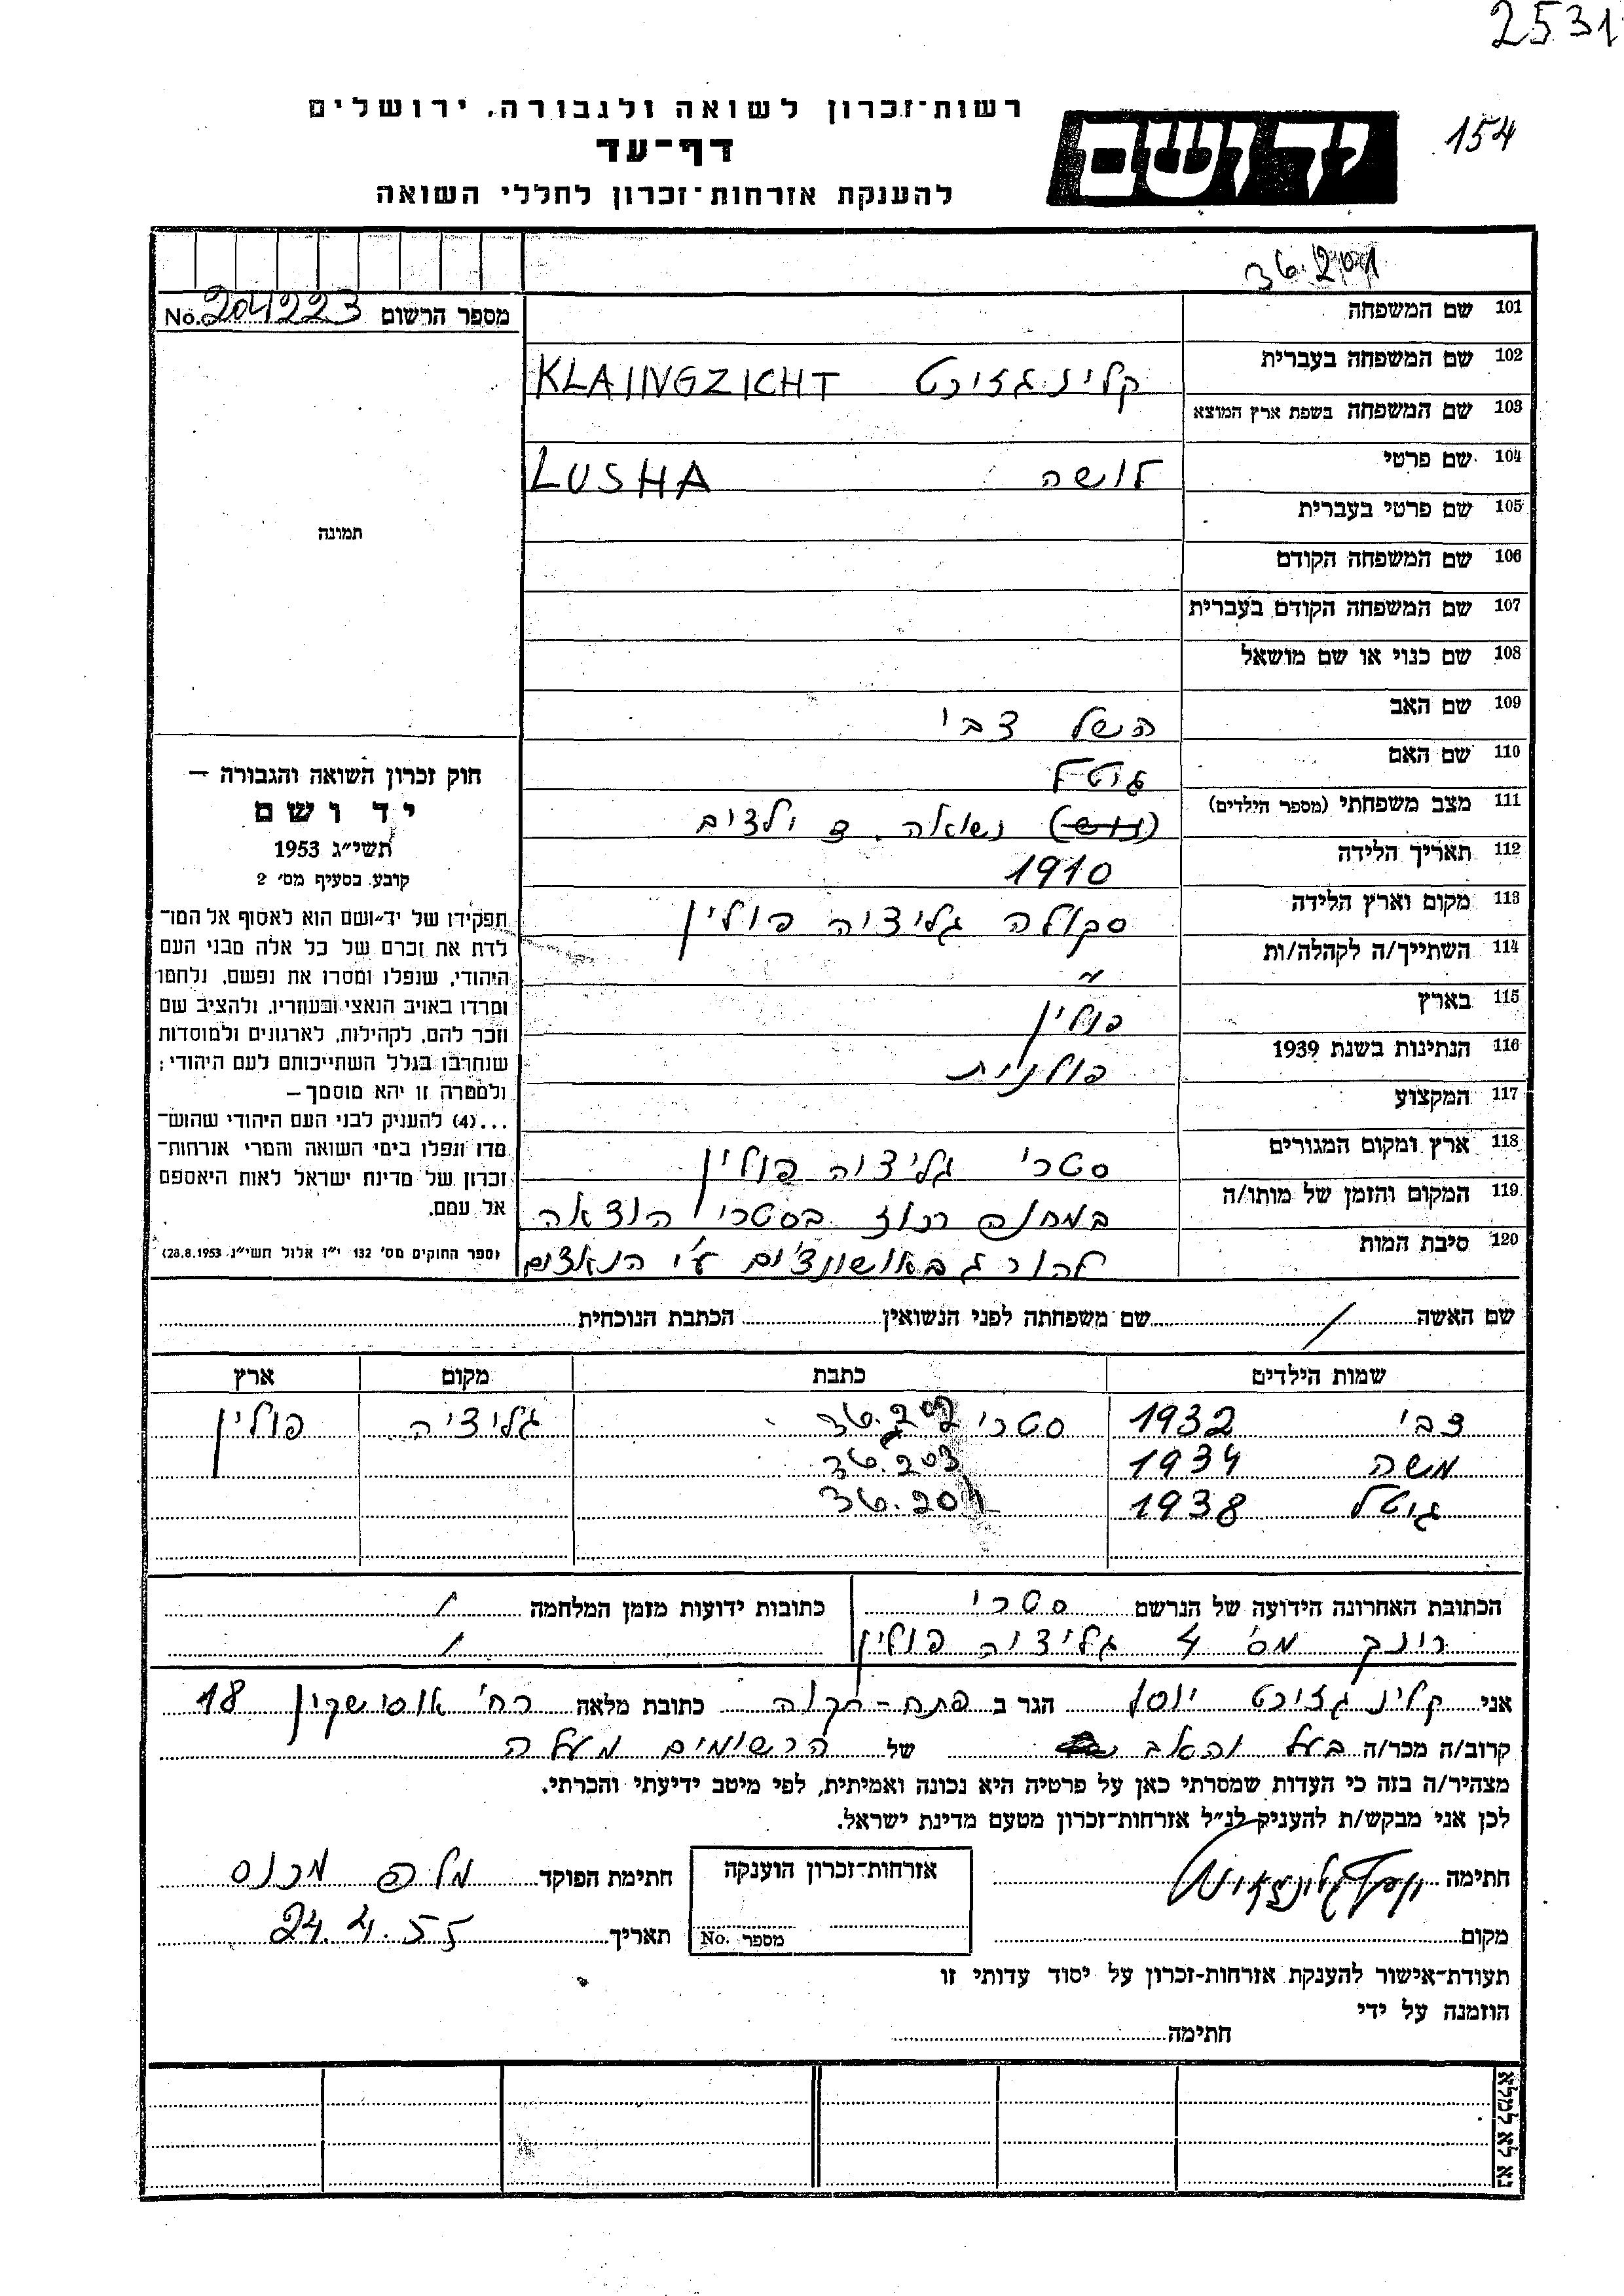 2531
154
רשות־זכרון לשואה ולגבורה, ירושלים
דף־עד
להענקת אזרחות־זכרון לחללי השואה
יד ושם
36.201
מספר הרשום No. 204223
101 שם המשפחה
102 שם המשפחה בעברית קלינגזיכט KLAINGZICHT
103 שם המשפחה בשפת ארץ המוצא
104 שם פרטי לושה LUSHA
105 שם פרטי בעברית
106 שם המשפחה הקודם
107 שם המשפחה הקודם בעברית
108 שם כנוי או שם מושאל
109 שם האב השל צבי
110 שם האם גיטל
111 מצב משפחתי (מספר הילדים) נשואה ילדים
112 תאריך הלידה 1910
113 מקום וארץ הלידה סקולה גליציה פולין
114 השתייך/ה לקהלה/ות "
115 בארץ פולין
116 הנתינות בשנת 1939 פולנית
117 המקצוע
118 ארץ ומקום המגורים סטרי גליציה פולין
119 המקום והזמן של מותו/ה במחנה רכוז בסטרי הוצאה
120 סיבת המות להורג באושוויצ'ים ע"י הנאצים
תמונה
חוק זכרון השואה והגבורה —
יד ושם
תשי״ג 1953
קובע בסעיף מס׳ 2
תפקידו של יד־ושם הוא לאסוף אל המו־
לדת את זכרם של כל אלה מבני העם
היהודי, שנפלו ומסרו את נפשם, נלחמו
ומרדו באויב הנאצי ובעוזריו, ולהציב שם
וזכר להם, לקהילות, לארגונים ולמוסדות
שנחרבו בגלל השתייכותם לעם היהודי;
ולמטרה זו יהא מוסמך —
...(4) להעניק לבני העם היהודי שהוש־
מדו ונפלו בימי השואה והמרי אזרחות־
זכרון של מדינת ישראל לאות היאספם
אל עמם.
(ספר החוקים מס׳ 132 י״ז אלול תשי״ג 28.8.1953)
שם האשה / שם משפחתה לפני הנשואין הכתבת הנוכחית
שמות הילדים כתבת מקום ארץ
צבי 1932 סטרי 36.202 גליציה פולין
משה 1934 36.203
גיטל 1938 36.204
הכתובת האחרונה הידועה של הנרשם סטרי
רינק מס' 4 גליציה פולין
כתובות ידועות מזמן המלחמה /
/
אני קלינגזיכט יוסף הגר ב פתח-תקוה כתובת מלאה רח' אוסישקין 18
קרוב/ה מכר/ה בעל והאב של הרשומים מעלה
מצהיר/ה בזה כי העדות שמסרתי כאן על פרטיה היא נכונה ואמיתית, לפי מיטב ידיעתי והכרתי.
לכן אני מבקש/ת להעניק לנ״ל אזרחות־זכרון מטעם מדינת ישראל.
חתימה
אזרחות־זכרון הוענקה
מספר No.
חתימת הפוקד
מקום
תאריך 24.4.55
תעודת־אישור להענקת אזרחות־זכרון על יסוד עדותי זו
הוזמנה על ידי
חתימה
נא לא למלא